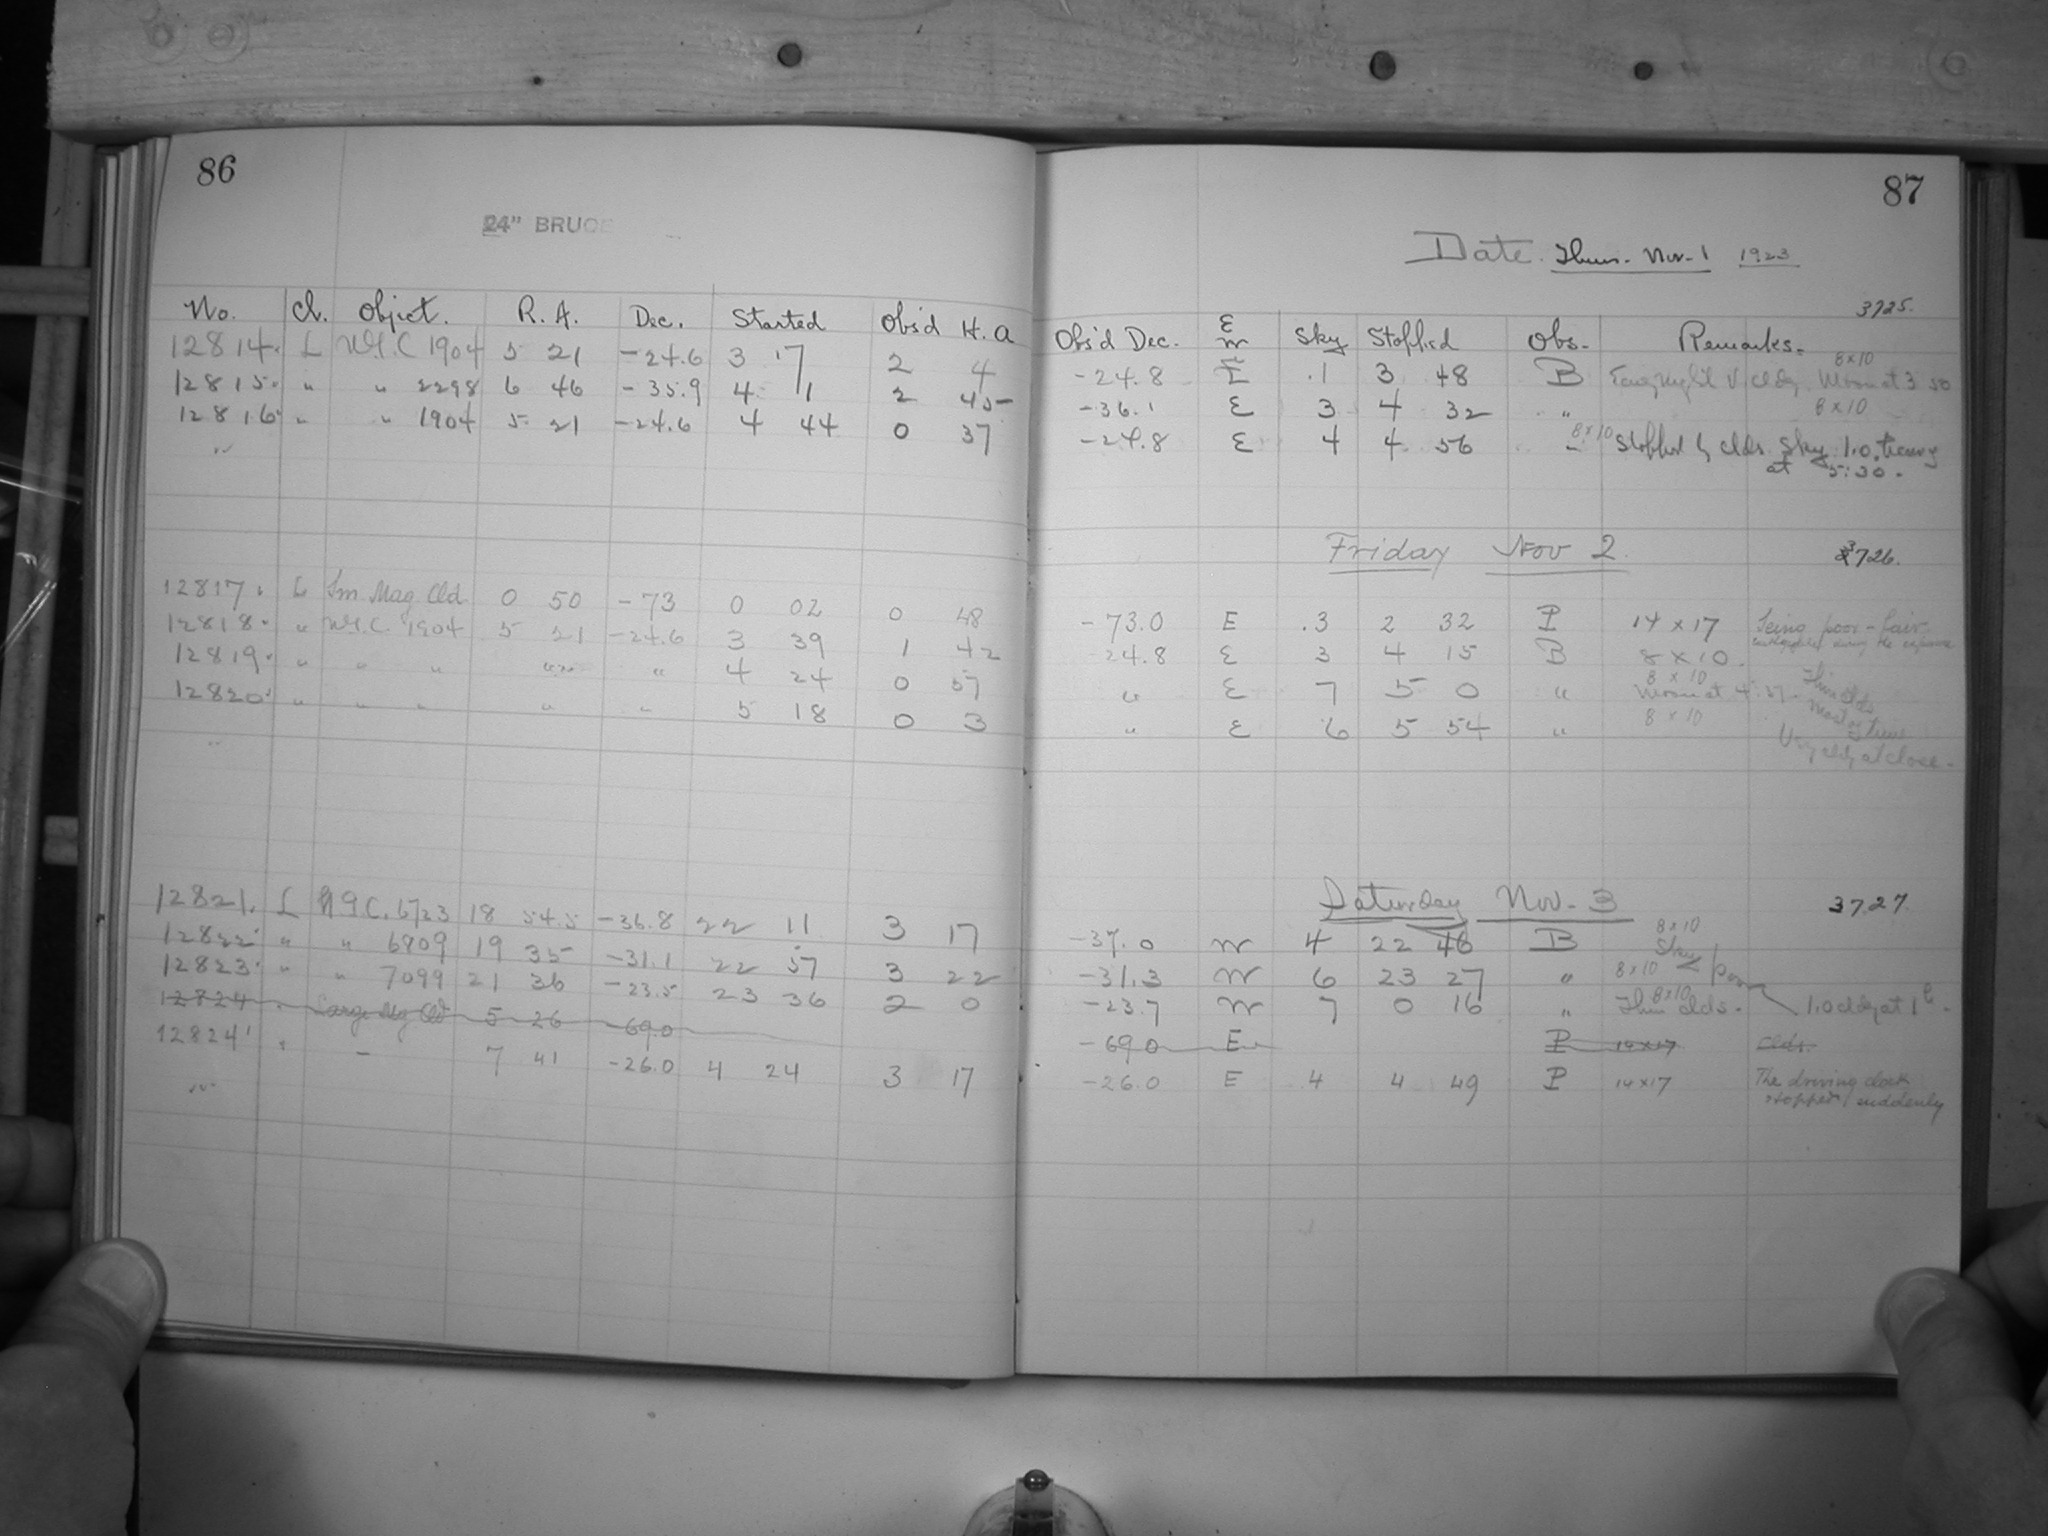 86
24" BRUCE
No. Cl. Object. R. A. Dec. Started Obs'd H. A
12814. L N.G.C 1904 5 21 -24.6 3 17 2 4
12815. " " 2298 6 46 -35.9 4 11 2 45
12816. " " 1904 5 21 -24.6 4 44 0 37
"
12817. L Sm Mag. Cld 0 50 -73 0 02 0 48
12818. " N.G.C. 1904 5 21 -24.6 3 39 1 42
12819. " " " " " 4 24 0 57
12820. " " " " " 5 18 0 3
"
12821. L N.G.C. 6723 18 54.5 -36.8 22 11 3 17
12822. " " 6809 19 35 -31.1 22 57 3 22
12823. " " 7099 21 36 -23.5 23 36 2 0
12724 " Large Mg Cld 5 26 -69.0
12824. " - 7 41 -26.0 4 24 3 17
"
87
Date. Thur. Nov. 1 1923
3725.
Obs'd Dec. E W Sky Stopped Obs. Remarks.
-24.8 E .1 3 48 B cldy. Moon at 3 50 8x10
-36.1 E 3 4 32 " 8x10
-24.8 E 4 4 56 " 8x10 Stopped by clds. Sky 1.0,
at 5:30.
Friday Nov 2. 3726.
-73.0 E .3 2 32 P 14 x 17 Seeing poor - fair
the exposure
-24.8 E 3 4 15 B 8 x 10.
" E 7 5 0 " 8 x 10 Moon at 4:57. Thin clds most of time
" E 6 5 54 " 8 x 10 Very cldy at close.
Saturday Nov. 3 3727.
-37.0 W 4 22 46 B 8x10 Sky poor
-31.3 W 6 23 27 " 8x10
-23.7 W 7 0 16 " 8x10 Thin clds. 1.0 cldy at 1h.
-69.0 E P 14x17 Clds.
-26.0 E 4 4 49 P 14x17 The driving clock
stopped suddenly